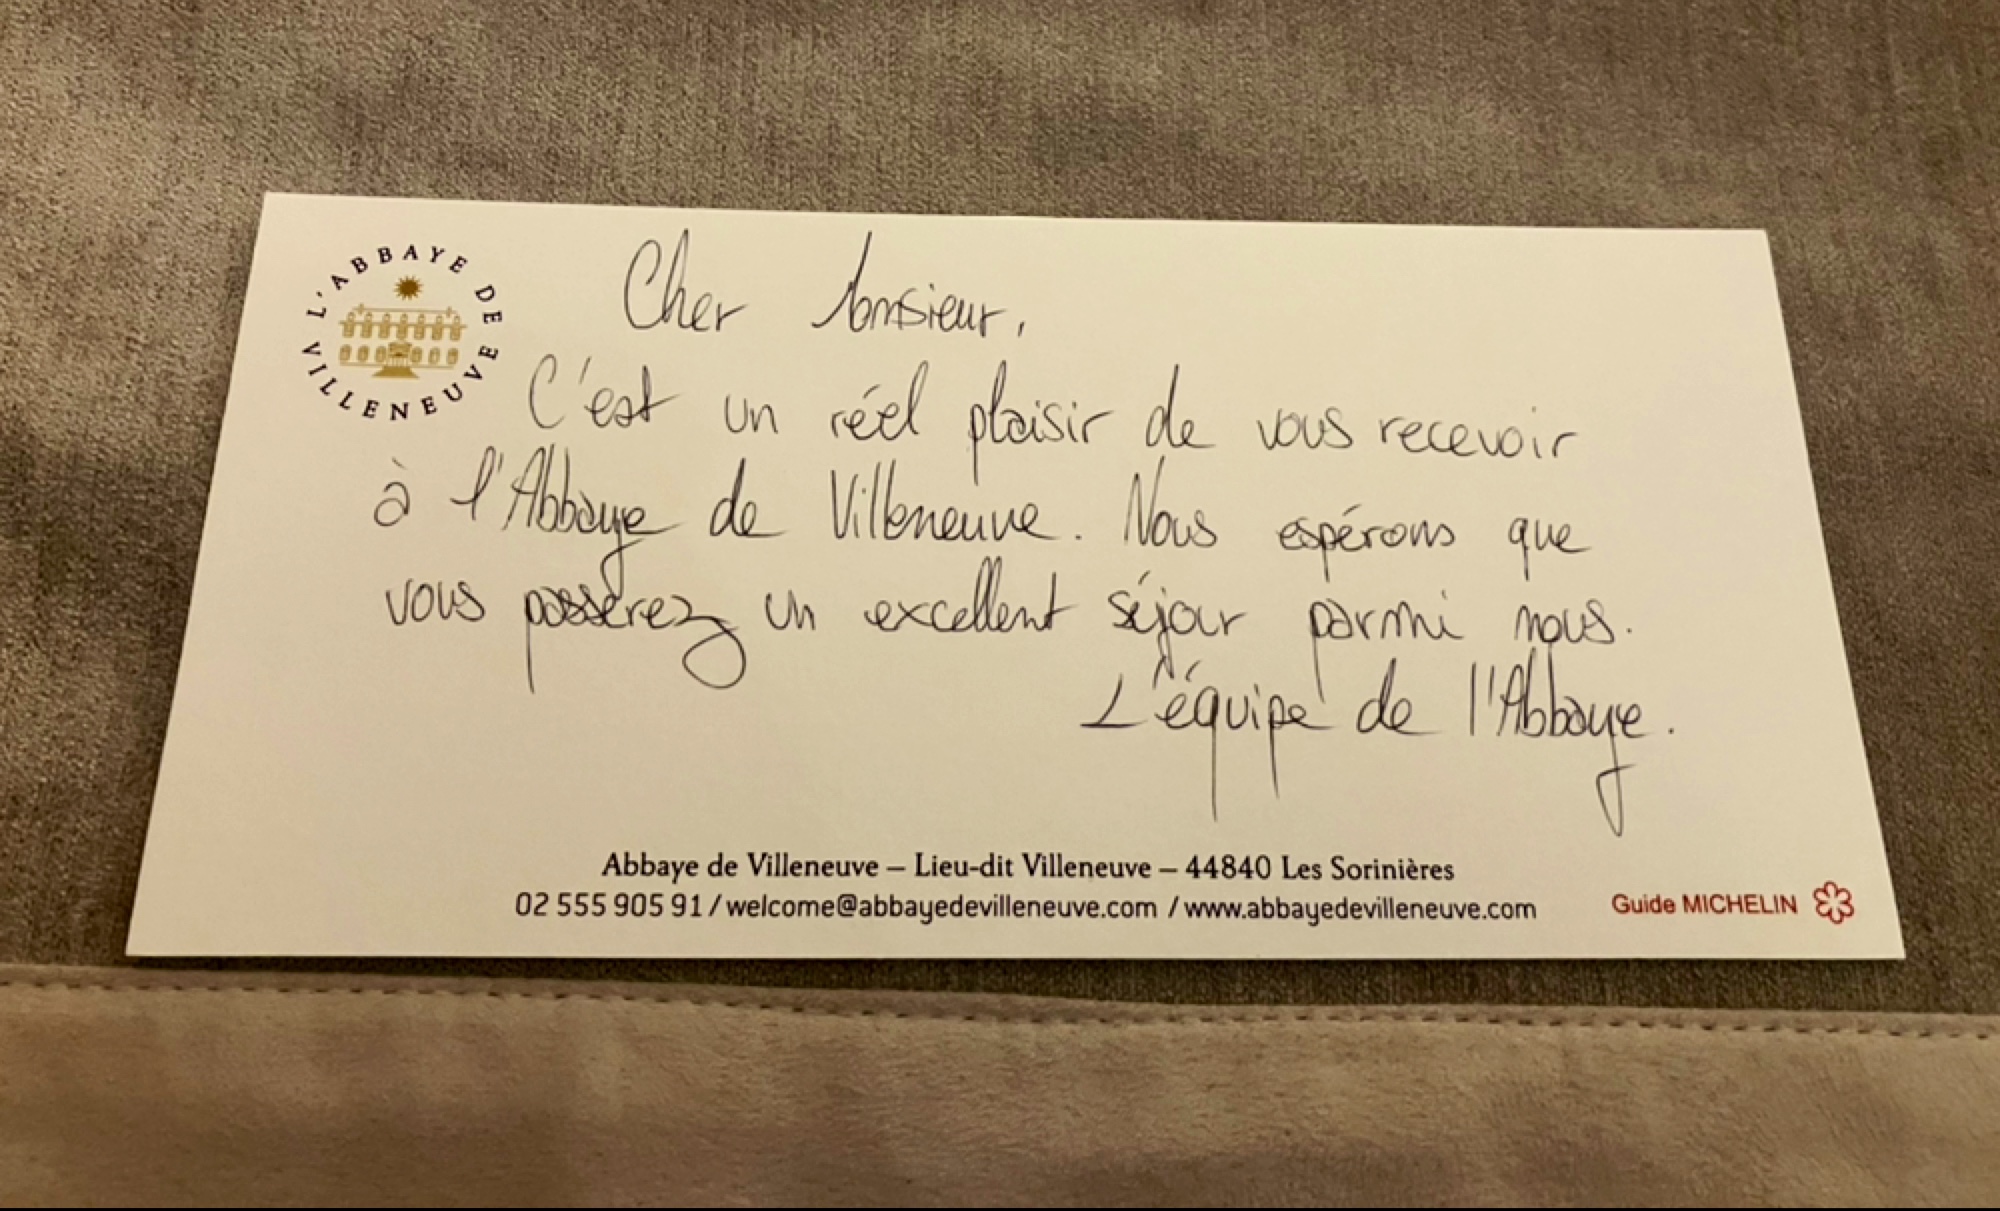 L'ABBAYE DE VILLENEUVE
Cher Monsieur,
C'est un réel plaisir de vous recevoir
à l'Abbaye de Villeneuve. Nous espérons que
vous passerez un excellent séjour parmi nous.
L'équipe de l'Abbaye.
Abbaye de Villeneuve – Lieu-dit Villeneuve – 44840 Les Sorinières
02 555 905 91 / welcome@abbayedevilleneuve.com / www.abbayedevilleneuve.com
Guide MICHELIN